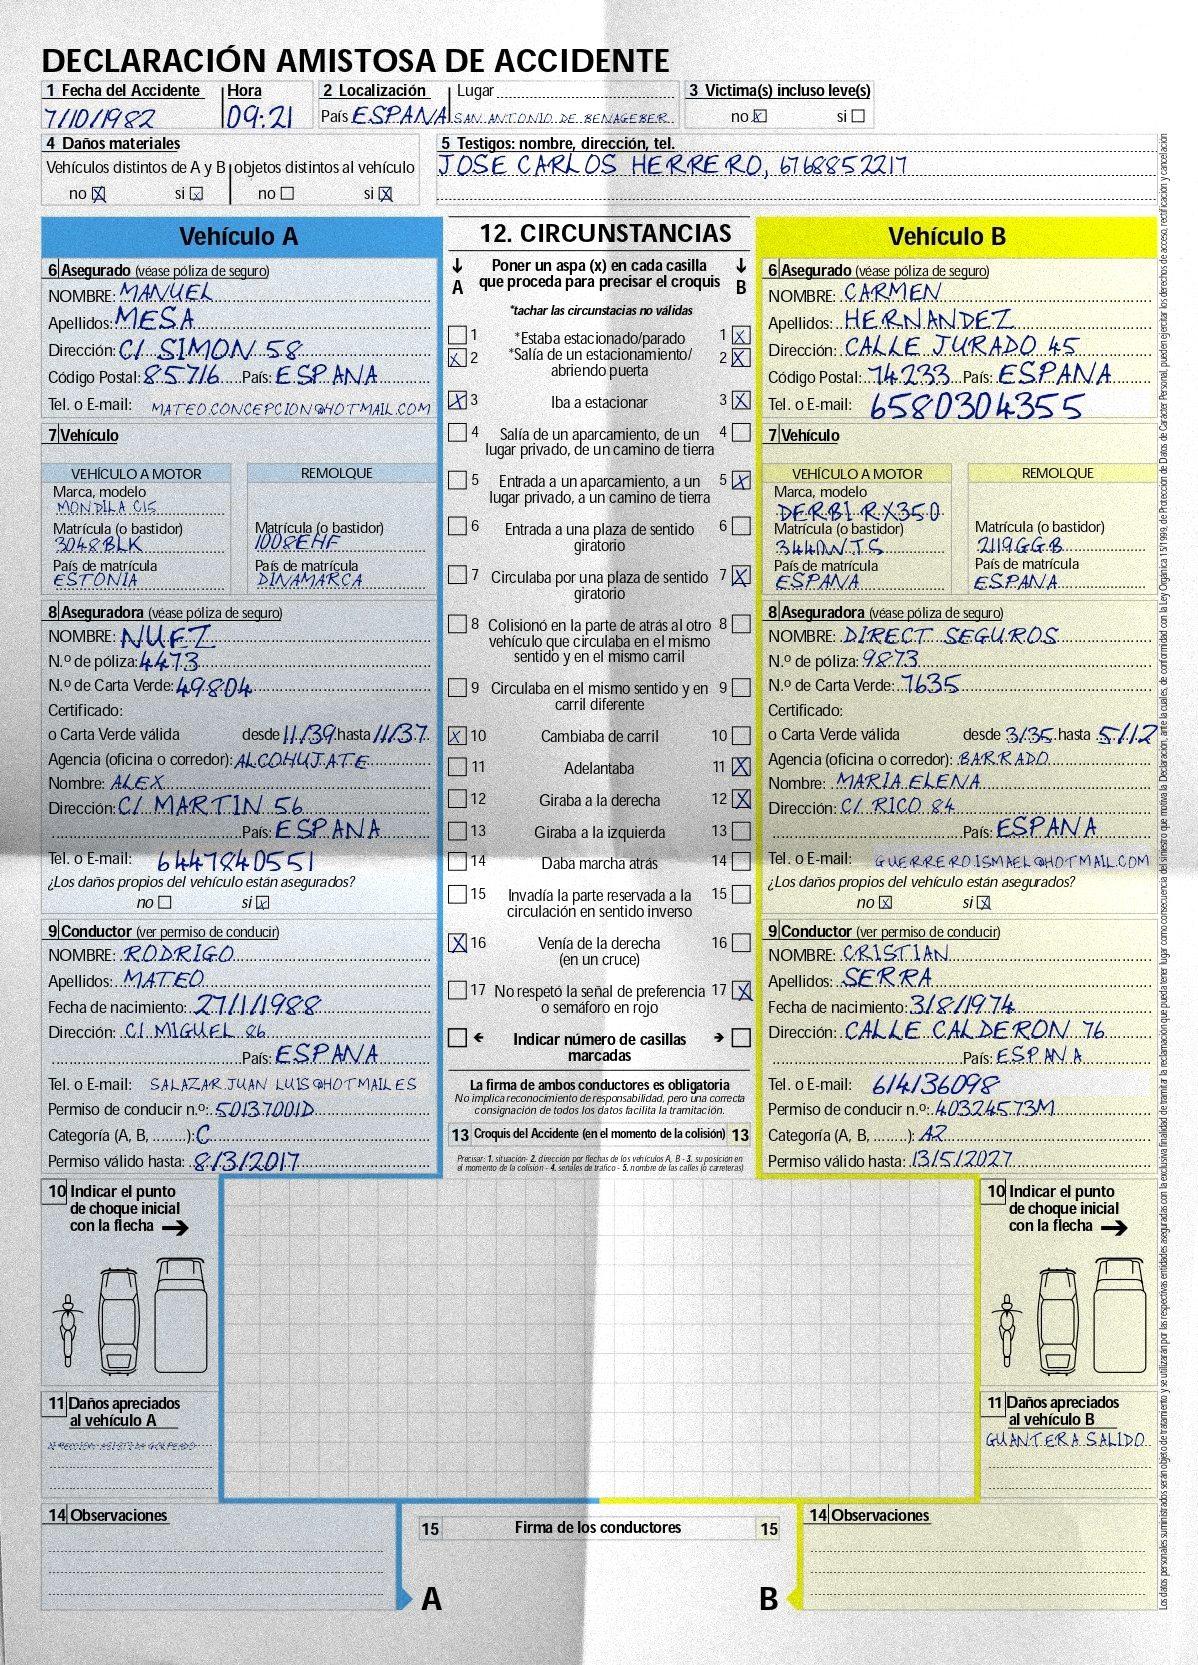 DECLARACIÓN AMISTOSA DE ACCIDENTE
1 Fecha del Accidente Hora 2 Localización Lugar 3 Victima(s) incluso leve(s)
7/10/1982 09:21 País ESPANA SAN ANTONIO DE BENAGEBER no X si
4 Daños materiales 5 Testigos: nombre, dirección, tel.
Vehículos distintos de A y B objetos distintos al vehículo JOSE CARLOS HERRERO, 6768852217
no X si X no si X
Vehículo A
6 Asegurado (véase póliza de seguro)
NOMBRE: MANUEL
Apellidos: MESA
Dirección: C/ SIMON 58
Código Postal: 85716 País: ESPANA
Tel. o E-mail: MATEO.CONCEPCION@HOTMAIL.COM
7 Vehículo
VEHÍCULO A MOTOR REMOLQUE
Marca, modelo
MONDILA C15
Matrícula (o bastidor) Matrícula (o bastidor)
3048BLK 1008EHF
País de matrícula País de matrícula
ESTONIA DINAMARCA
8 Aseguradora (véase póliza de seguro)
NOMBRE: NUEZ
N.º de póliza: 4473
N.º de Carta Verde: 49804
Certificado:
o Carta Verde válida desde 11/39 hasta 11/37
Agencia (oficina o corredor): ALCOHUJATE
Nombre: ALEX
Dirección: C/ MARTIN 56
País: ESPANA
Tel. o E-mail: 6447840551
¿Los daños propios del vehículo están asegurados?
no si X
9 Conductor (ver permiso de conducir)
NOMBRE: RODRIGO
Apellidos: MATEO
Fecha de nacimiento: 27/1/1988
Dirección: C/ MIGUEL 86
País: ESPANA
Tel. o E-mail: SALAZAR.JUAN LUIS@HOTMAIL.ES
Permiso de conducir n.º: 50137001D
Categoría (A, B, ........): C
Permiso válido hasta: 8/3/2017
12. CIRCUNSTANCIAS
A Poner un aspa (x) en cada casilla que proceda para precisar el croquis B
*tachar las circunstacias no válidas
1 *Estaba estacionado/parado 1 X
X 2 *Salía de un estacionamiento/ 2 X
abriendo puerta
X 3 Iba a estacionar 3 X
4 Salía de un aparcamiento, de un 4
lugar privado, de un camino de tierra
5 Entrada a un aparcamiento, a un 5 X
lugar privado, a un camino de tierra
6 Entrada a una plaza de sentido 6
giratorio
7 Circulaba por una plaza de sentido 7 X
giratorio
8 Colisionó en la parte de atrás al otro 8
vehículo que circulaba en el mismo
sentido y en el mismo carril
9 Circulaba en el mismo sentido y en 9
carril diferente
X 10 Cambiaba de carril 10
11 Adelantaba 11 X
12 Giraba a la derecha 12 X
13 Giraba a la izquierda 13
14 Daba marcha atrás 14
15 Invadía la parte reservada a la 15
circulación en sentido inverso
X 16 Venía de la derecha 16
(en un cruce)
17 No respetó la señal de preferencia 17 X
o semáforo en rojo
Indicar número de casillas
marcadas
La firma de ambos conductores es obligatoria
No implica reconocimiento de responsabilidad, pero una correcta
consignación de todos los datos facilita la tramitación.
13 Croquis del Accidente (en el momento de la colisión) 13
Precisar: 1. situación- 2. dirección por flechas de los vehículos A, B - 3. su posición en
el momento de la colisión - 4. señales de tráfico - 5. nombre de las calles (o carreteras)
Vehículo B
6 Asegurado (véase póliza de seguro)
NOMBRE: CARMEN
Apellidos: HERNANDEZ
Dirección: CALLE JURADO 45
Código Postal: 74233 País: ESPANA
Tel. o E-mail: 6580304355
7 Vehículo
VEHÍCULO A MOTOR REMOLQUE
Marca, modelo
DERBI RX350
Matrícula (o bastidor) Matrícula (o bastidor)
3440NTS 2119GGB
País de matrícula País de matrícula
ESPANA ESPANA
8 Aseguradora (véase póliza de seguro)
NOMBRE: DIRECT SEGUROS
N.º de póliza: 9873
N.º de Carta Verde: 7635
Certificado:
o Carta Verde válida desde 3/35 hasta 5/12
Agencia (oficina o corredor): BARRADO
Nombre: MARIA ELENA
Dirección: C/ RICO 84
País: ESPANA
Tel. o E-mail: GUERRERO.ISMAEL@HOTMAIL.COM
¿Los daños propios del vehículo están asegurados?
no X si X
9 Conductor (ver permiso de conducir)
NOMBRE: CRISTIAN
Apellidos: SERRA
Fecha de nacimiento: 3/8/1974
Dirección: CALLE CALDERON 76
País: ESPANA
Tel. o E-mail: 614136098
Permiso de conducir n.º: 40324573M
Categoría (A, B, ........): A2
Permiso válido hasta: 13/5/2027
10 Indicar el punto
de choque inicial
con la flecha
11 Daños apreciados
al vehículo A
10 Indicar el punto
de choque inicial
con la flecha
11 Daños apreciados
al vehículo B
GUANTERA SALIDO
14 Observaciones
15 Firma de los conductores 15
A B
14 Observaciones
Los datos personales suministrados serán objeto de tratamiento y se utilizarán por las respectivas entidades aseguradas con la exclusiva finalidad de tramitar la reclamación que pueda tener lugar como consecuencia del siniestro que motiva la Declaración, ante la cuales, de conformidad con la Ley Orgánica 15/1999, de Protección de Datos de Carácter Personal, pueden ejercitar los derechos de acceso, rectificación y cancelación